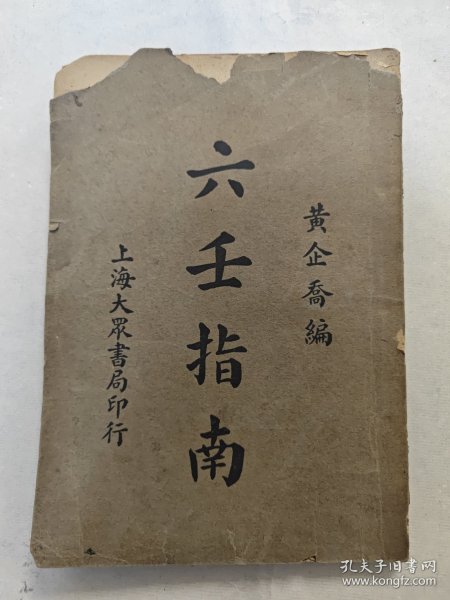 黄企喬編
六壬指南
上海大眾書局印行
孔夫子旧书网
www.kongfz.com